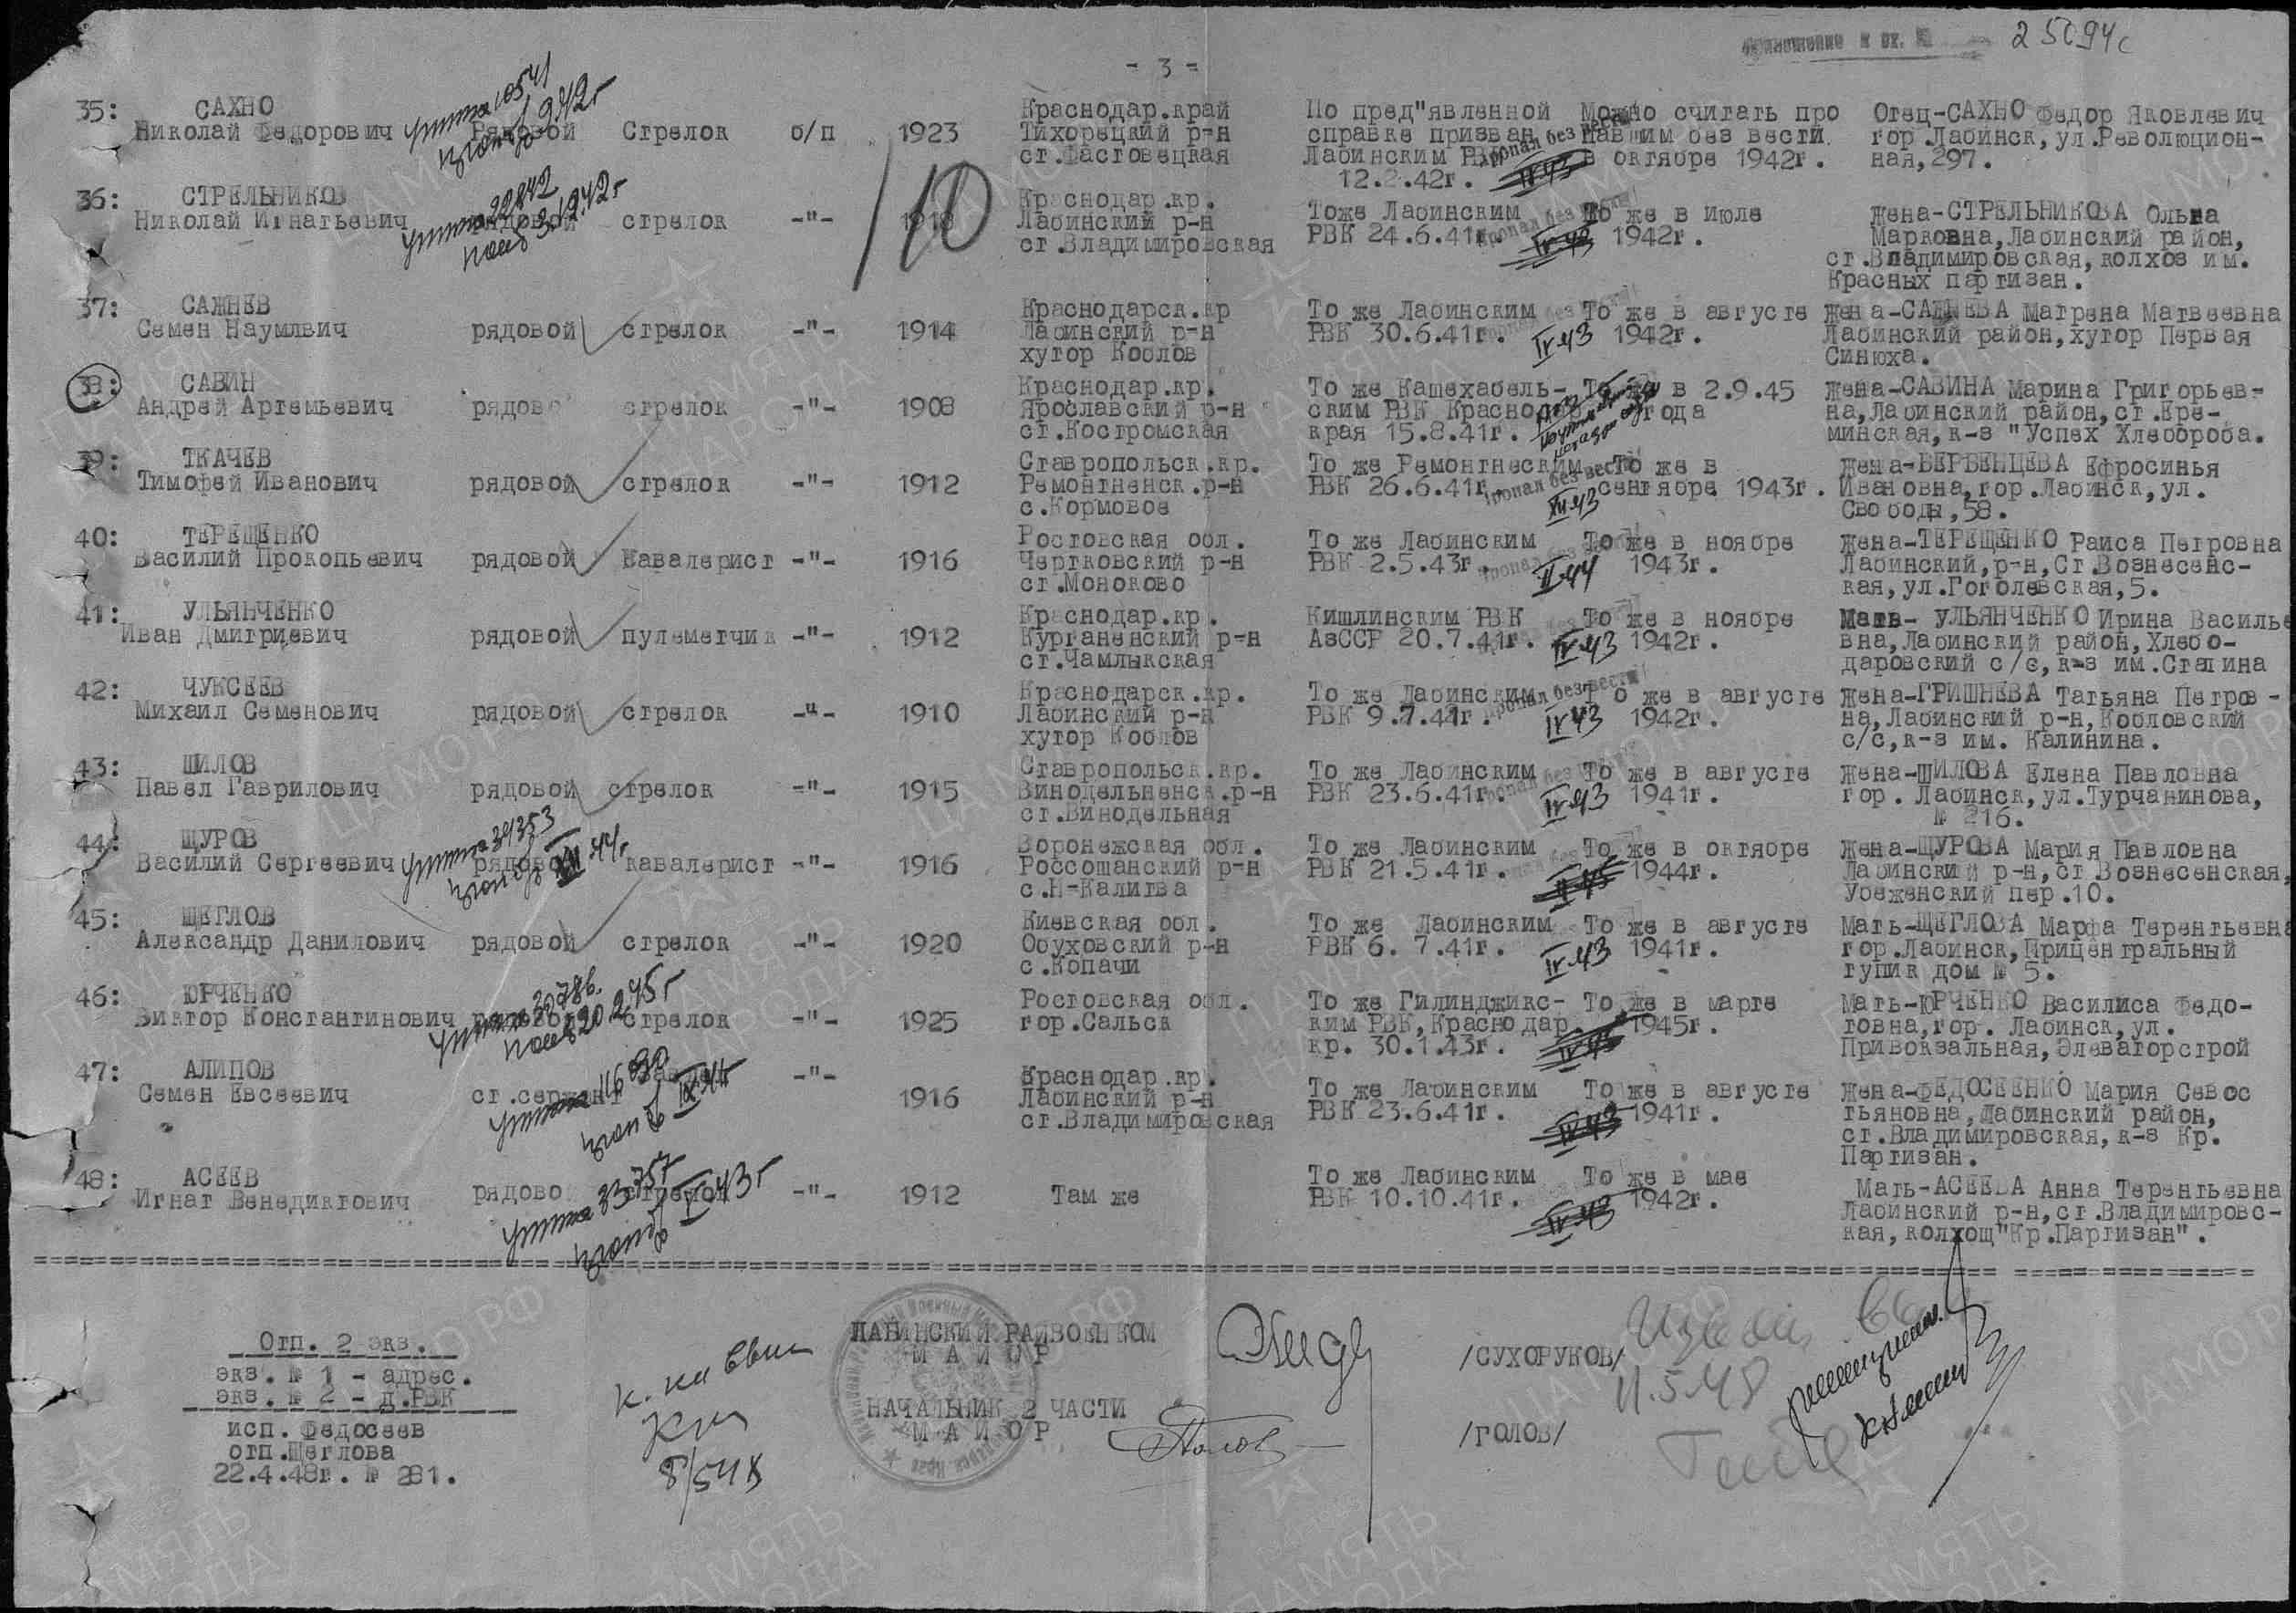 25094с
- 3 -
35: САХНО
Николай Федорович Рядовой Стрелок б/п 1923 Краснодар.край По пред"явленной Можно считать про Отец-САХНО Федор Яковлевич
Тихорецкий р-н справке призван павшим без вести гор.Лабинск,ул.Революцион-
ст.Фастовецкая Лабинским РВК в октябре 1942г. ная,297.
12.2.42г.
36: СТРЕЛЬНИКОВ Краснодар.кр.
Николай Игнатьевич рядовой стрелок -"- 1918 Лабинский р-н Тоже Лабинским То же в июле Жена-СТРЕЛЬНИКОВА Ольна
ст.Владимировская РВК 24.6.41г. 1942г. Марковна,Лабинский район,
ст.Владимировская,колхоз им.
Красных партизан.
37: САЖНЕВ Краснодарск.кр То же Лабинским То же в августе Жена-САЖНЕВА Матрена Матвеевна
Семен Наумлвич рядовой стрелок -"- 1914 Лабинский р-н РВК 30.6.41г. IV.43 1942г. Лабинский район,хутор Первая
хутор Коблов Синюха.
38: САВИН Краснодар.кр. То же Кашехабель- То же в 2.9.45 Жена-САВИНА Марина Григорьев-
Андрей Артемьевич рядово стрелок -"- 1908 Ярославский р-н ским РВК Краснодар года на,Лабинский район,ст.Ере-
ст.Костромская края 15.8.41г. минская,к-з "Успех Хлебороба.
39: ТКАЧЕВ Ставропольск.кр. То же Ремонтнеским То же в Жена-ВЕРБЕНЦЕВА Ефросинья
Тимофей Иванович рядовой стрелок -"- 1912 Ремонтненск.р-н РВК 26.6.41г. сентябре 1943г. Ивановна,гор.Лабинск,ул.
с.Кормовое XII.43 Свободы,58.
40: ТЕРЕЩЕНКО Ростовская обл. То же Лабинским То же в ноябре Жена-ТЕРЕЩЕНКО Раиса Петровна
Василий Прокопьевич рядовой Кавалерист -"- 1916 Чертковский р-н РВК 2.5.43г. II.44 1943г. Лабинский,р-н,Ст.Вознесенс-
ст.Моноково кая,ул.Гоголевская,5.
41: УЛЬЯНЧЕНКО Краснодар.кр. Кишлинским РВК То же в ноябре Мать- УЛЬЯНЧЕНКО Ирина Василье
Иван Дмитриевич рядовой пулеметчик -"- 1912 Курганенский р-н АзССР 20.7.41г. IV.43 1942г. вна,Лабинский район,Хлебо-
ст.Чамлыкская даровский с/с,к-з им.Сталина
42: ЧУКСЕЕВ Краснодарск.кр. То же Лабинским То же в августе Жена-ГРИШНЕВА Татьяна Петров-
Михаил Семенович рядовой стрелок -"- 1910 Лабинский р-н РВК 9.7.41г. IV.43 1942г. на,Лабинский р-н,Кобловский
хутор Коблов с/с,к-з им. Калинина.
43: ШИЛОВ Ставропольск.кр. То же Лабинским То же в августе Жена-ШИЛОВА Елена Павловна
Павел Гаврилович рядовой стрелок -"- 1915 Винодельненск.р-н РВК 23.6.41г. IV.43 1941г. гор. Лабинск,ул.Турчанинова,
ст.Винодельная № 216.
44: ЩУРОВ Воронежская обл. То же Лабинским То же в октябре Жена-ЩУРОВА Мария Павловна
Василий Сергеевич рядовой кавалерист -"- 1916 Россошанский р-н РВК 21.5.41г. 1944г. Лабинский р-н,ст Вознесенская,
с.Н-Калитва Убеженский пер.10.
45: ЩЕГЛОВ Киевская обл. То же Лабинским То же в августе Мать-ЩЕГЛОВА Марфа Терентьевна
Александр Данилович рядовой стрелок -"- 1920 Обуховский р-н РВК 6. 7.41г. IV.43 1941г. гор.Лабинск,Прицентральный
с.Копачи тупик дом № 5.
46: ЮРЧЕНКО Ростовская обл. То же Гилинджикс- То же в марте Мать-ЮРЧЕНКО Василиса Федо-
Виктор Константинович рядовой стрелок -"- 1925 гор.Сальск ким РВК,Краснодар. 1945г. товна,гор. Лабинск,ул.
кр. 30.1.43г. Привокзальная,Элеваторстрой
47: АЛИПОВ -"- Краснодар.кр. То же Лабинским То же в августе Жена-ФЕДОСЕЕНКО Мария Севос
Семен Евсеевич ст.сержант 1916 Лабинский р-н РВК 23.6.41г. 1941г. тьяновна,Лабинский район,
ст.Владимировская ст.Владимировская,к-з Кр.
Партизан.
48: АСЕЕВ То же Лабинским То же в мае
Игнат Венедиктович рядово стрелок -"- 1912 Там же РВК 10.10.41г. 1942г. Мать-АСЕЕВА Анна Терентьевна
Лабинский р-н,ст.Владимировс-
кая,колхощ"Кр.Партизан".
Отп. 2 экз.
экз. № 1 - адрес.
экз. № 2 - д.РВК
исп. Федосеев
отп.Щеглова
22.4.48г. № 281.
ЛАБИНСКИЙ РАЙВОЕНКОМ
МАЙОР /СУХОРУКОВ/
НАЧАЛЬНИК 2 ЧАСТИ
МАЙОР /ГОЛОВ/
11.5.48